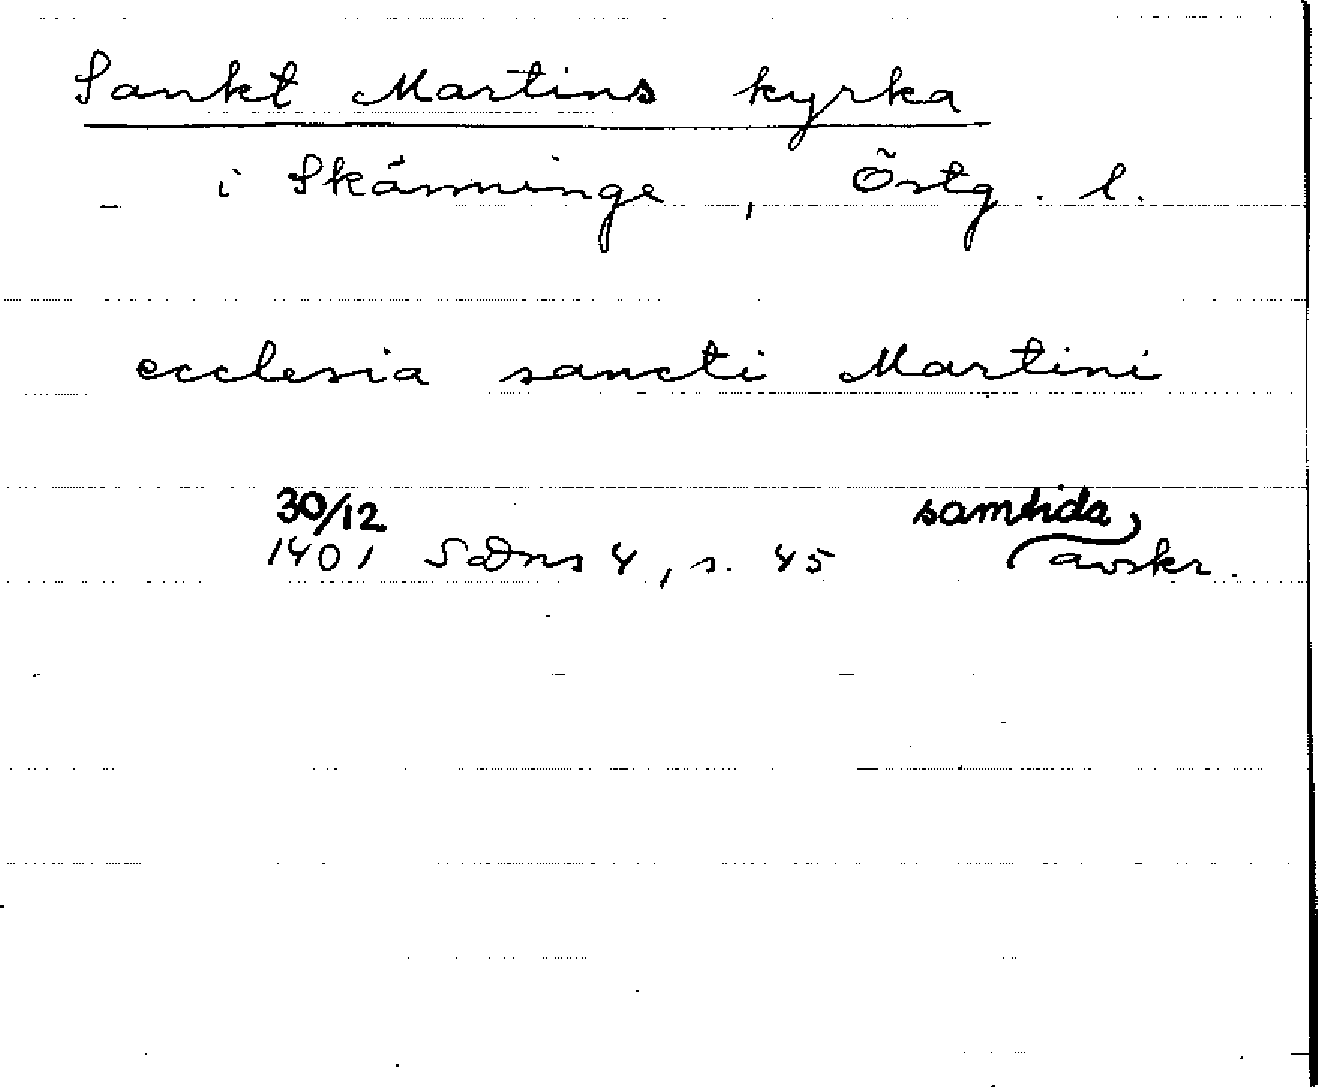 Sankt Martins kyrka
i Skänninge, Östg. l.
ecclesia sancti Martini
30/12 samtida
1401 SDns 4, s. 45 avskr.